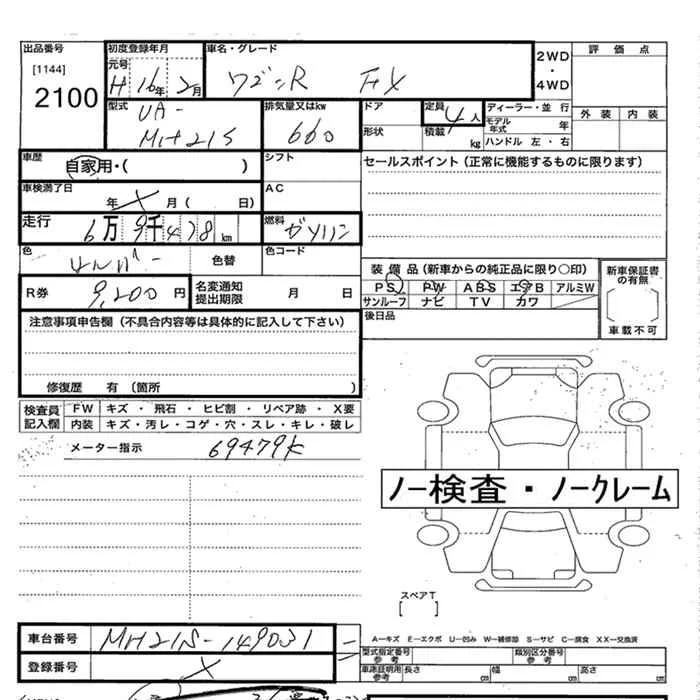 出品番号 初度登録年月 車名・グレード
[1144] 元号
2100 H 16年 2月 ワゴンR FX 2WD・4WD 評価点
型式 排気量又はkw ドア 定員 ディーラー・並行 外装 内装
UA-
MH21S 660 4人 モデル年式 年
形状 積載 kg ハンドル 左・右
車歴 自家用・( ) シフト セールスポイント(正常に機能するものに限ります)
車検満了日 年 X 月( 日) AC
走行 6万9千478km 燃料 ガソリン
色 シルバー 色替 色コード
装備品(新車からの純正品に限り○印) 新車保証書の有無
R券 9,200円 名変通知提出期限 月 日
PS PW ABS エアB アルミW
サンルーフ ナビ TV カワ
後日品 車載不可
注意事項申告欄(不具合内容等は具体的に記入して下さい)
修復歴 有(箇所 )
検査員記入欄 FW キズ・飛石・ヒビ割・リペア跡・X要
内装 キズ・汚レ・コゲ・穴・スレ・キレ・破レ
メーター指示 69479K
ノー検査・ノークレーム
スペアT
[ ]
車台番号 MH21S-149031
A-キズ E-エクボ U-凹み W-補修跡 S-サビ C-腐食 XX-交換済
型式指定番号 参考 類別区分番号 参考
登録番号 X
車庫証明用 参考 長さ cm 幅 cm 高さ cm